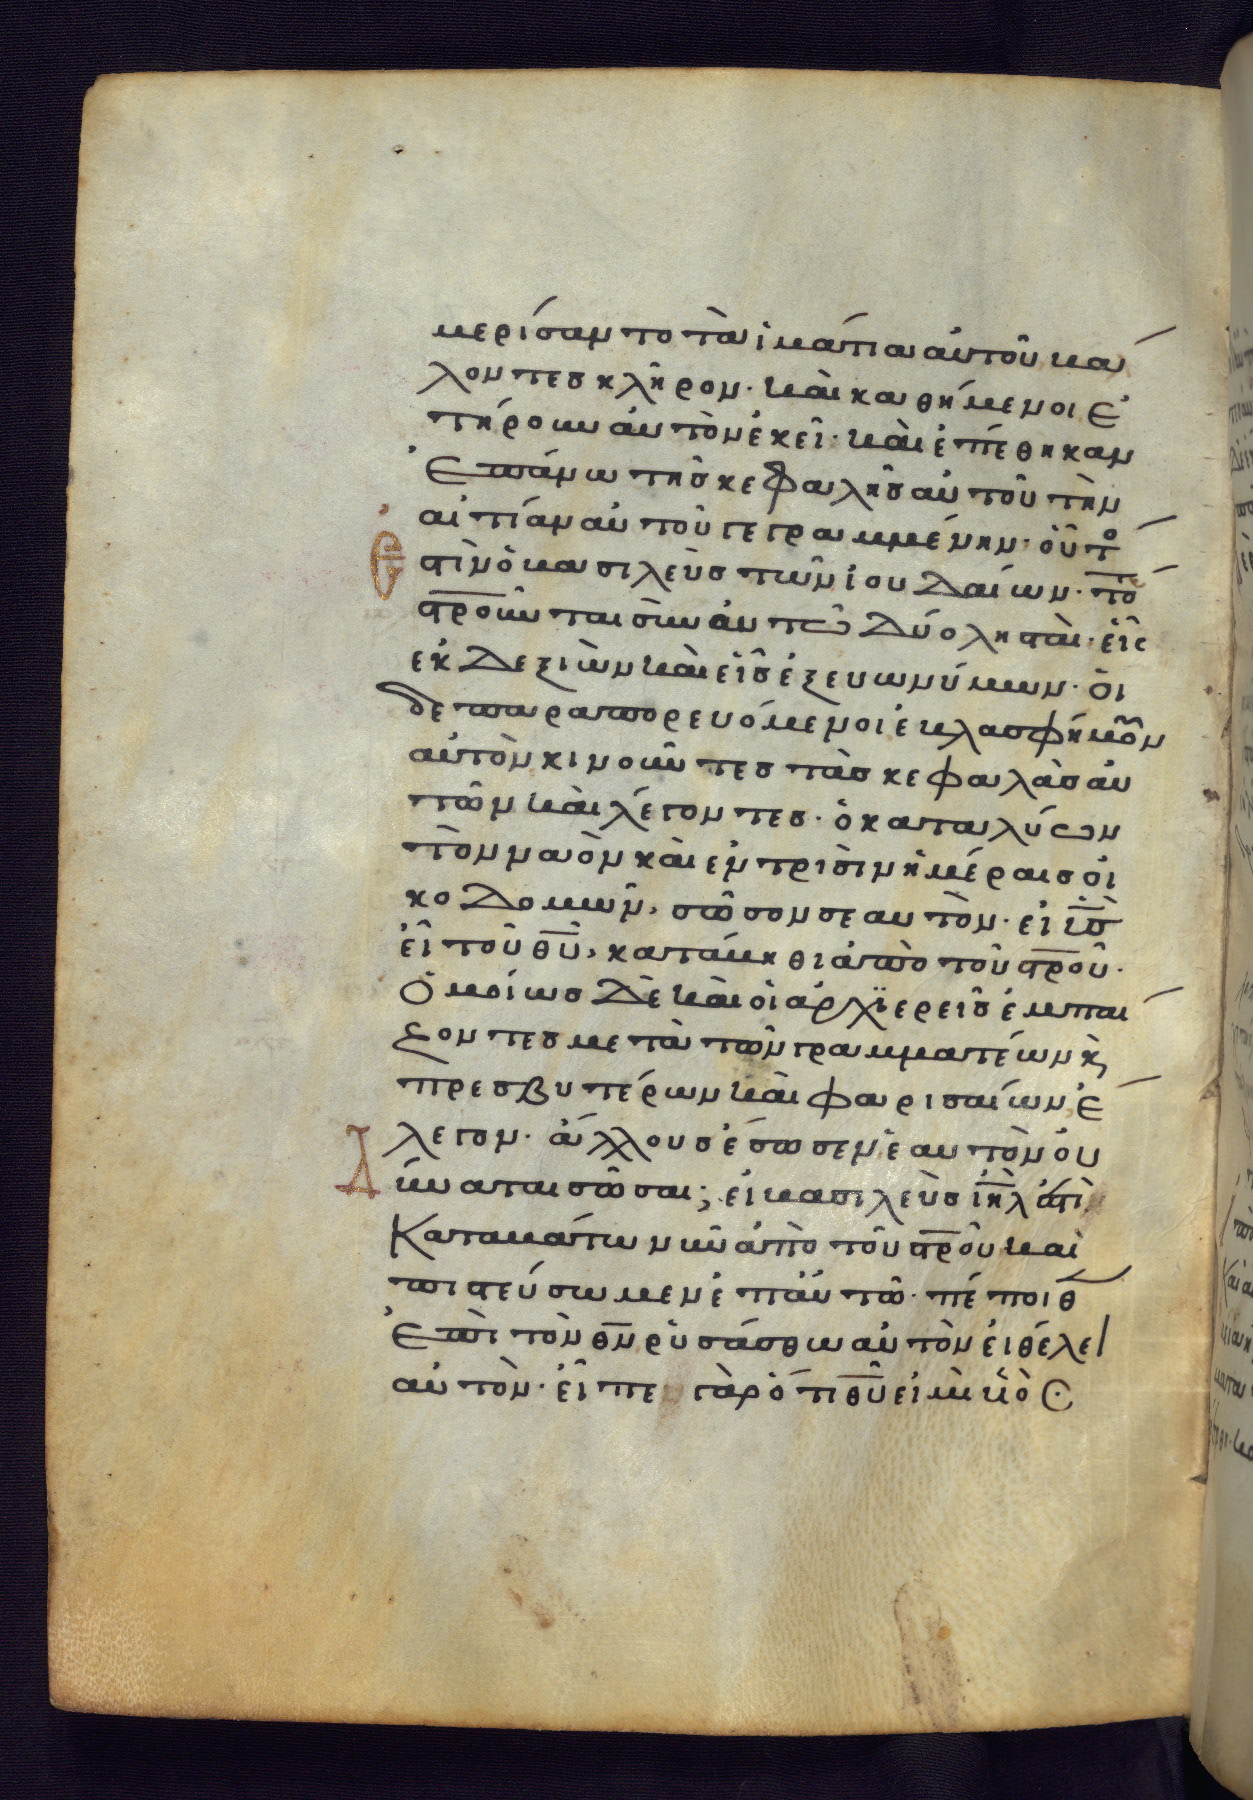 μερίσαντο τὰ ἱμάτια αὐτοῦ βά
λοντες κλῆρον· καὶ καθήμενοι ἐ
τήρουν αὐτὸν ἐκεῖ· καὶ ἐπέθηκαν
ἐπάνω τῆς κεφαλῆς αὐτοῦ τὴν
αἰτίαν αὐτοῦ γεγραμμένην· οὗτο
ἐστὶν ὁ βασιλεὺς τῶν ἰουδαίων· τό
σ̅ρ̅οῦνται σὺν αὐτῶ δύο λησταὶ· εἷς
ἐκ δεξιῶν καὶ εἷς ἐξ εὐωνύμων· οἱ
δὲ παραπορευόμενοι ἐβλασφήμουν
αὐτὸν κινοῦντες τὰς κεφαλὰς αὐ
τῶν καὶ λέγοντες· ὁ καταλύων
τὸν ναὸν καὶ ἐν τρισὶν ἡμέραις οἰ
κοδομῶν, σῶσον σεαυτὸν· εἰ υ̅ς̅
εἶ τοῦ θ̅υ̅, κατάβηθι ἀπὸ τοῦ σ̅ρ̅οῦ·
Ὁμοίως δὲ καὶ οἱ ἀρχϊερεῖς ἐμπαί
ζοντες μετὰ τῶν γραμματέων κ̀
πρεσβυτέρων καὶ φαρισαίων ἔ
λεγον· ἄλλους ἔσωσεν ἑαυτὸν οὐ
Δύναται σῶσαι; εἰ βασιλεὺς ι̅η̅λ ἐστὶ
Καταβάτω νῦν ἀπὸ τοῦ σ̅ρ̅οῦ καὶ
πιστεύσωμεν ἐπ' αὐτῶ· πέποιθ
ἐπὶ τὸν θ̅ν̅ ῥυσάσθω αὐτὸν εἰ θέλει
αὐτὸν· εἶπε γὰρ ὅτι θ̅υ̅ εἰμὶ υἱὸς